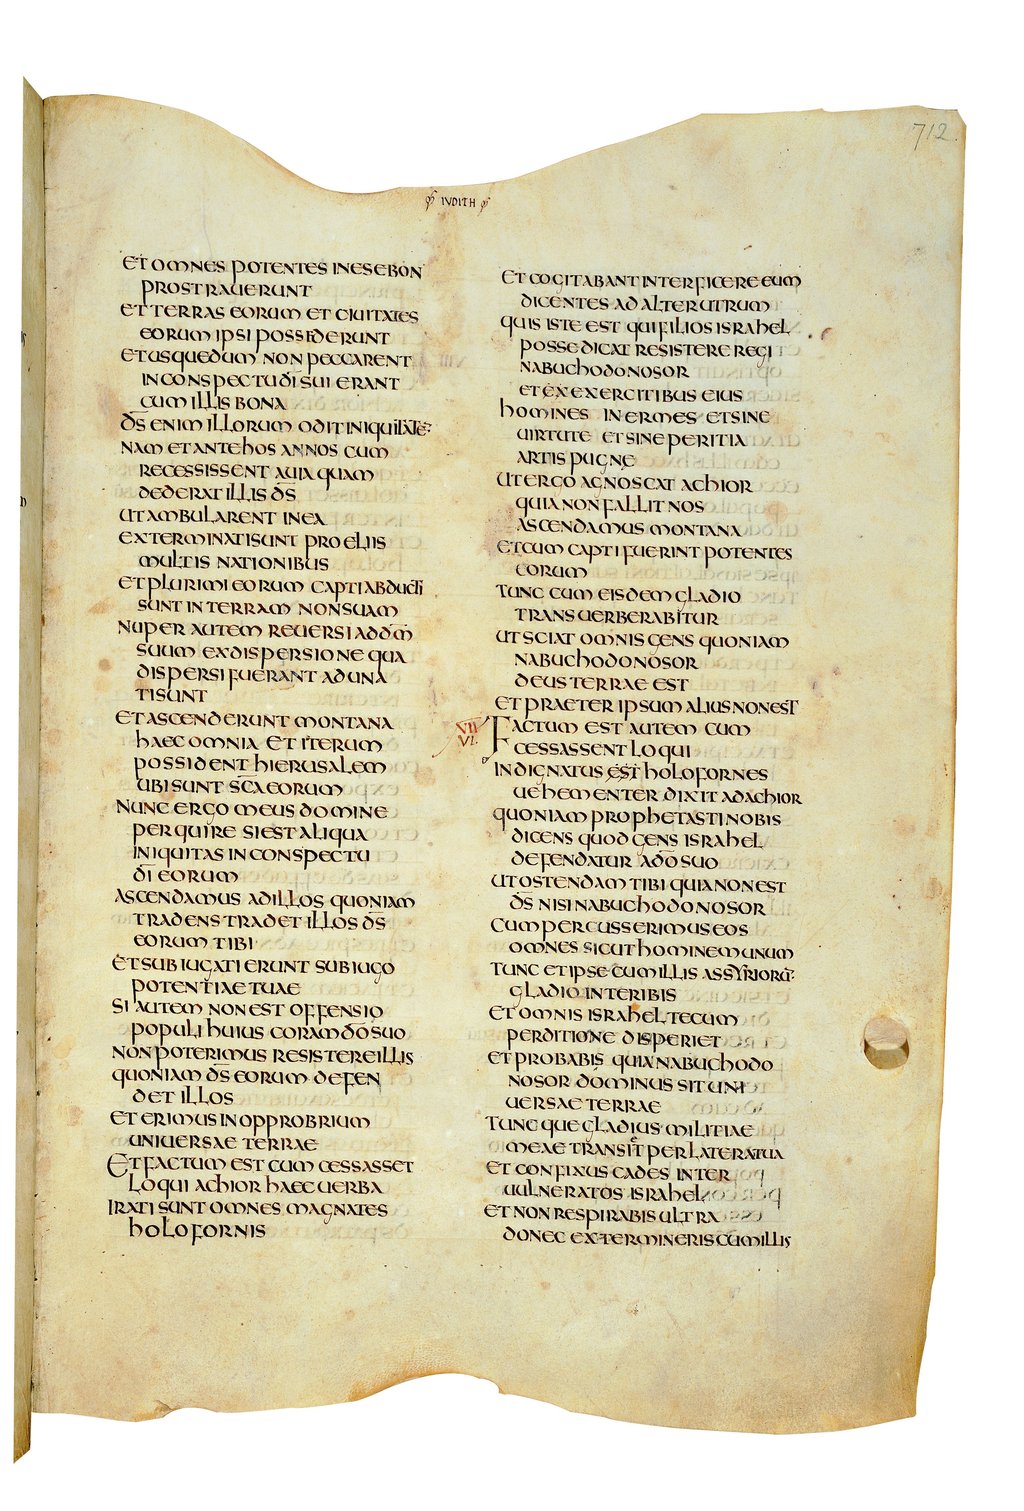 712
IUDITH
ET OMNES POTENTES IN ESEBON
PROSTRAUERUNT
ET TERRAS EORUM ET CIUITATES
EORUM IPSI POSSIDERUNT
ET USQUEDUM NON PECCARENT
IN CONSPECTU DI SUI ERANT
CUM ILLIS BONA
DS ENIM ILLORUM ODIT INIQUITATE
NAM ET ANTE HOS ANNOS CUM
RECESSISSENT A UIA QUAM
DEDERAT ILLIS DS
UT AMBULARENT IN EA
EXTERMINATI SUNT PROELIIS
MULTIS NATIONIBUS
ET PLURIMI EORUM CAPTI ABDUCTI
SUNT IN TERRAM NON SUAM
NUPER AUTEM REUERSI AD DM
SUUM EX DISPERSIONE QUA
DISPERSI FUERANT ADUNA
TI SUNT
ET ASCENDERUNT MONTANA
HAEC OMNIA ET ITERUM
POSSIDENT HIERUSALEM
UBI SUNT SCA EORUM
NUNC ERGO MEUS DOMINE
PERQUIRE SI EST ALIQUA
INIQUITAS IN CONSPECTU
DI EORUM
ASCENDAMUS AD ILLOS QUONIAM
TRADENS TRADET ILLOS DS
EORUM TIBI
ET SUBIUGATI ERUNT SUB IUGO
POTENTIAE TUAE
SI AUTEM NON EST OFFENSIO
POPULI HUIUS CORAM DO SUO
NON POTERIMUS RESISTERE ILLIS
QUONIAM DS EORUM DEFEN
DET ILLOS
ET ERIMUS IN OPPROBRIUM
UNIUERSAE TERRAE
ET FACTUM EST CUM CESSASSET
LOQUI ACHIOR HAEC UERBA
IRATI SUNT OMNES MAGNATES
HOLOFORNIS
ET COGITABANT INTERFICERE EUM
DICENTES AD ALTERUTRUM
QUIS ISTE EST QUI FILIOS ISRAHEL
POSSE DICAT RESISTERE REGI
NABUCHODONOSOR
ET EX EXERCITIBUS EIUS
HOMINES INERMES ET SINE
UIRTUTE ET SINE PERITIA
ARTIS PUGNE
UT ERGO AGNOSCAT ACHIOR
QUIA NON FALLIT NOS
ASCENDAMUS MONTANA
ET CUM CAPTI FUERINT POTENTES
EORUM
TUNC CUM EISDEM GLADIO
TRANSUERBERABITUR
UT SCIAT OMNIS GENS QUONIAM
NABUCHODONOSOR
DEUS TERRAE EST
ET PRAETER IPSUM ALIUS NON EST
VII
VI
FACTUM EST AUTEM CUM
CESSASSENT LOQUI
INDIGNATUS EST HOLOFORNES
UEHEMENTER DIXIT AD ACHIOR
QUONIAM PROPHETASTI NOBIS
DICENS QUOD GENS ISRAHEL
DEFENDATUR A DO SUO
UT OSTENDAM TIBI QUIA NON EST
DS NISI NABUCHODONOSOR
CUM PERCUSSERIMUS EOS
OMNES SICUT HOMINEM UNUM
TUNC ET IPSE CUM ILLIS ASSYRIORU
GLADIO INTERIBIS
ET OMNIS ISRAHEL TECUM
PERDITIONE DISPERIET
ET PROBABIS QUIA NABUCHODO
NOSOR DOMINUS SIT UNI
UERSAE TERRAE
TUNCQUE GLADIUS MILITIAE
MEAE TRANSIET PER LATERA TUA
ET CONFIXUS CADES INTER
UULNERATOS ISRAHEL
ET NON RESPIRABIS ULTRA
DONEC EXTERMINERIS CUM ILLIS